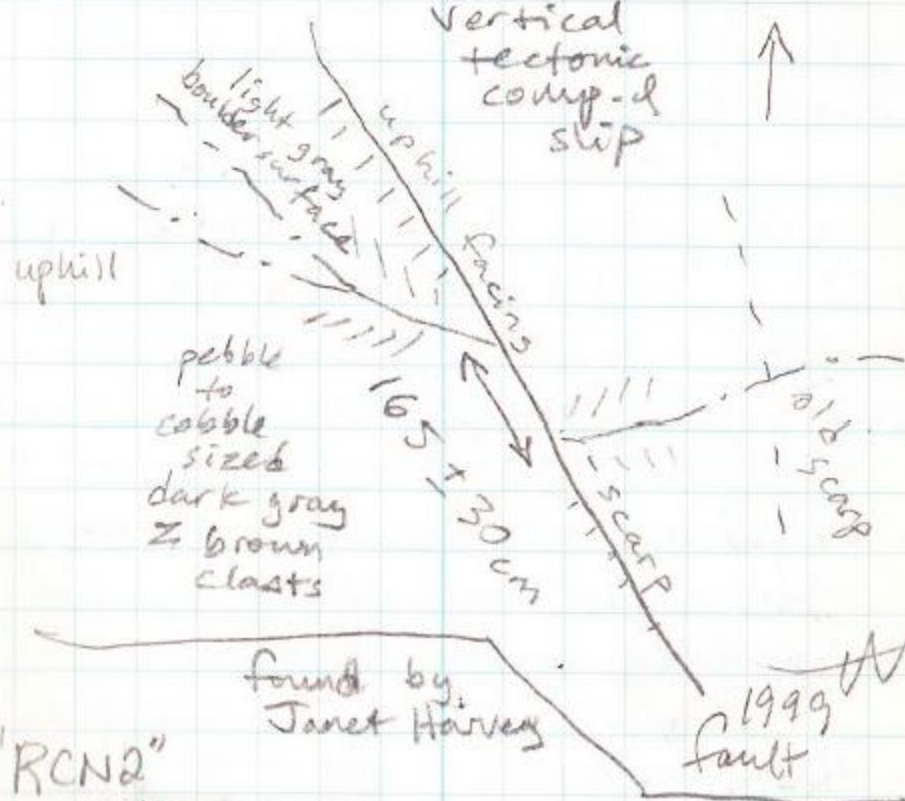 vertical
tectonic
comp. of
slip
light gray
boulder surface
uphill
facing
scarp
uphill
pebble
to
cobble
sized
dark gray
& brown
clasts
165 ± 30 cm
old scarp
found by
Janet Harvey
1999
fault
"RCN2"